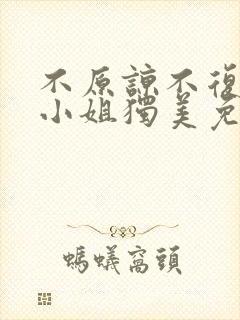 不原諒不復
小姐獨美免
螞蟻窩頭